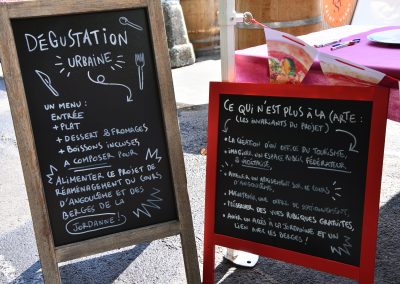 DÉGUSTATION
URBAINE
UN MENU :
ENTRÉE
+ PLAT
+ DESSERT & FROMAGES
+ BOISSONS INCLUSES
À COMPOSER POUR
ALIMENTER LE PROJET DE
RÉAMÉNAGEMENT DU COURS
D'ANGOULÊME ET DES
BERGES DE LA
JORDANNE !
CE QUI N'EST PLUS À LA CARTE :
(LES INVARIANTS DU PROJET)
• LA CRÉATION D'UN OFFICE DU TOURISME,
• IMAGINER UN ESPACE PUBLIC FÉDÉRATEUR
UN SUR LE COURS
D'ANGOULÊME,
• MAINTENIR UNE OFFRE DE STATIONNEMENT,
• PRÉSERVER DES VUES PUBLIQUES GRATUITES,
• AVOIR UN ACCÈS À LA JORDANNE ET UN
LIEN AVEC LES BERGES !